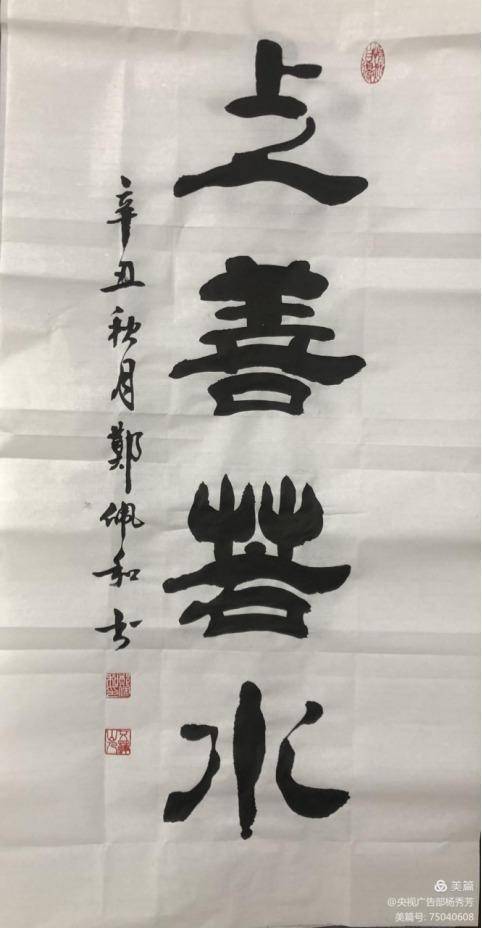 上善若水
辛丑秋月鄭佩和书
美篇
@央视广告部杨秀芳
美篇号: 75040608